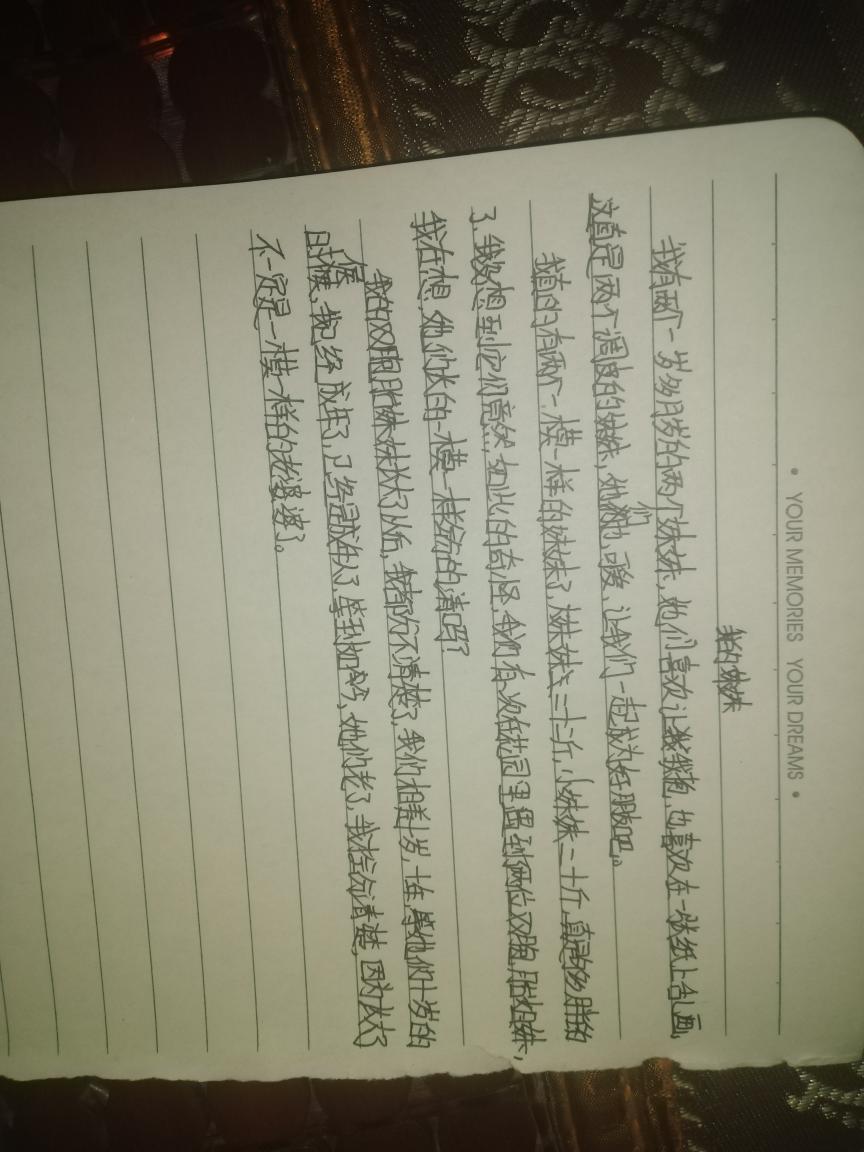 • YOUR MEMORIES YOUR DREAMS •
我的妹妹
我有两个一岁多月岁的两个妹妹,她们喜欢让我抱,也喜欢在一张纸上乱画,
这真是两个调皮的妹妹,她们可爱、让我们一起成为好朋友吧。
我真的有两个一模一样的妹妹了,大妹妹二十三斤,小妹妹二十斤,真是够多胖的
了,我没想到它们竟然,如此的奇怪,我们有次在花园里遇到俩位双胞胎姐妹,
我在想,她们长的一模一样分的清吗?
我的双胞胎妹妹长大了以后,我都分不清楚了,我们相差十岁,十年,等她们十岁的
时候,我已经成年了,已经是成年人了,等到她们,她们老了,我在分清楚,因为长大了
不一定是一模一样的老婆婆了。